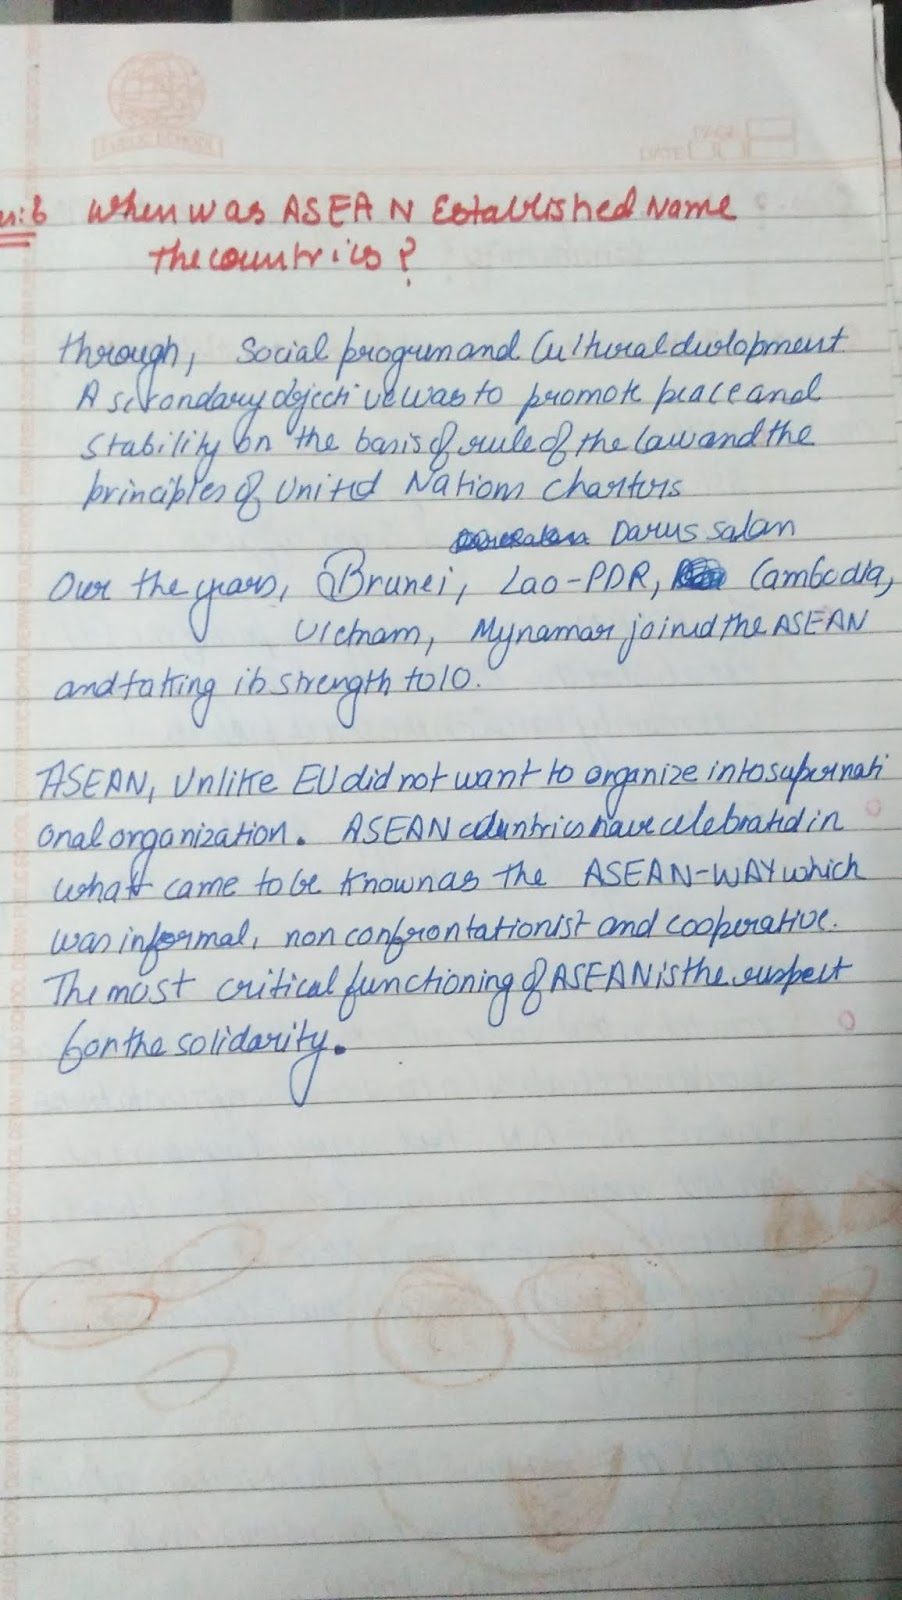 PUBLIC SCHOOL
PAGE
DATE
When was ASEAN Established Name
the countries?
through, Social progrem and Cultural devlopment
A secondary objective was to promote peace and
Stability on the basis of rule of the law and the
principles of United Nations Charters
Darus salan
Over the years, Brunei, Lao-PDR, Cambodia,
Vietnam, Mynamar joined the ASEAN
and taking its strength to 10.
ASEAN, Unlike EU did not want to organize into supernati
onal organization. ASEAN countries have celebrated in
what came to be known as the ASEAN-WAY which
was informal, non confrontationist and cooperative.
The most critical functioning of ASEAN is the respect
for the solidarity.